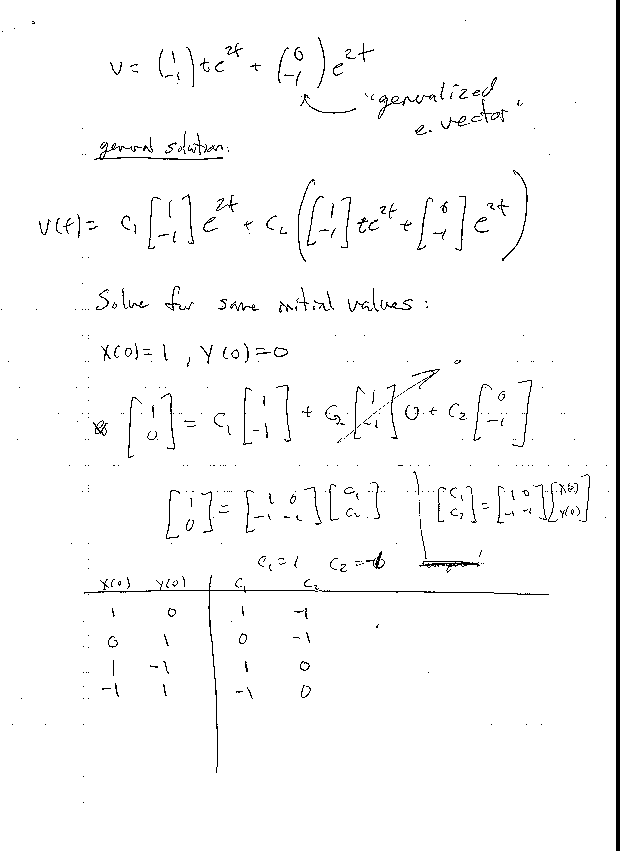 V = (1 -1) te^2t + (0 -1) e^2t
"generalized
e. vector"
general solution:
V(t) = C₁ [1 -1] e^2t + C₂ ([1 -1] te^2t + [0 -1] e^2t)
Solve for some initial values:
X(0)=1 , Y(0)=0
[1 0] = C₁ [1 -1] + C₂ [1 -1] 0 + C₂ [0 -1]
[1 0] = [1 0 -1 -1] [C₁ C₂] [C₁ C₂] = [1 0 -1 -1] [X(0) Y(0)]
C₁ = 1 C₂ = -1
X(0) Y(0) C₁ C₂
1 0 1 -1
0 1 0 -1
1 -1 1 0
-1 1 -1 0